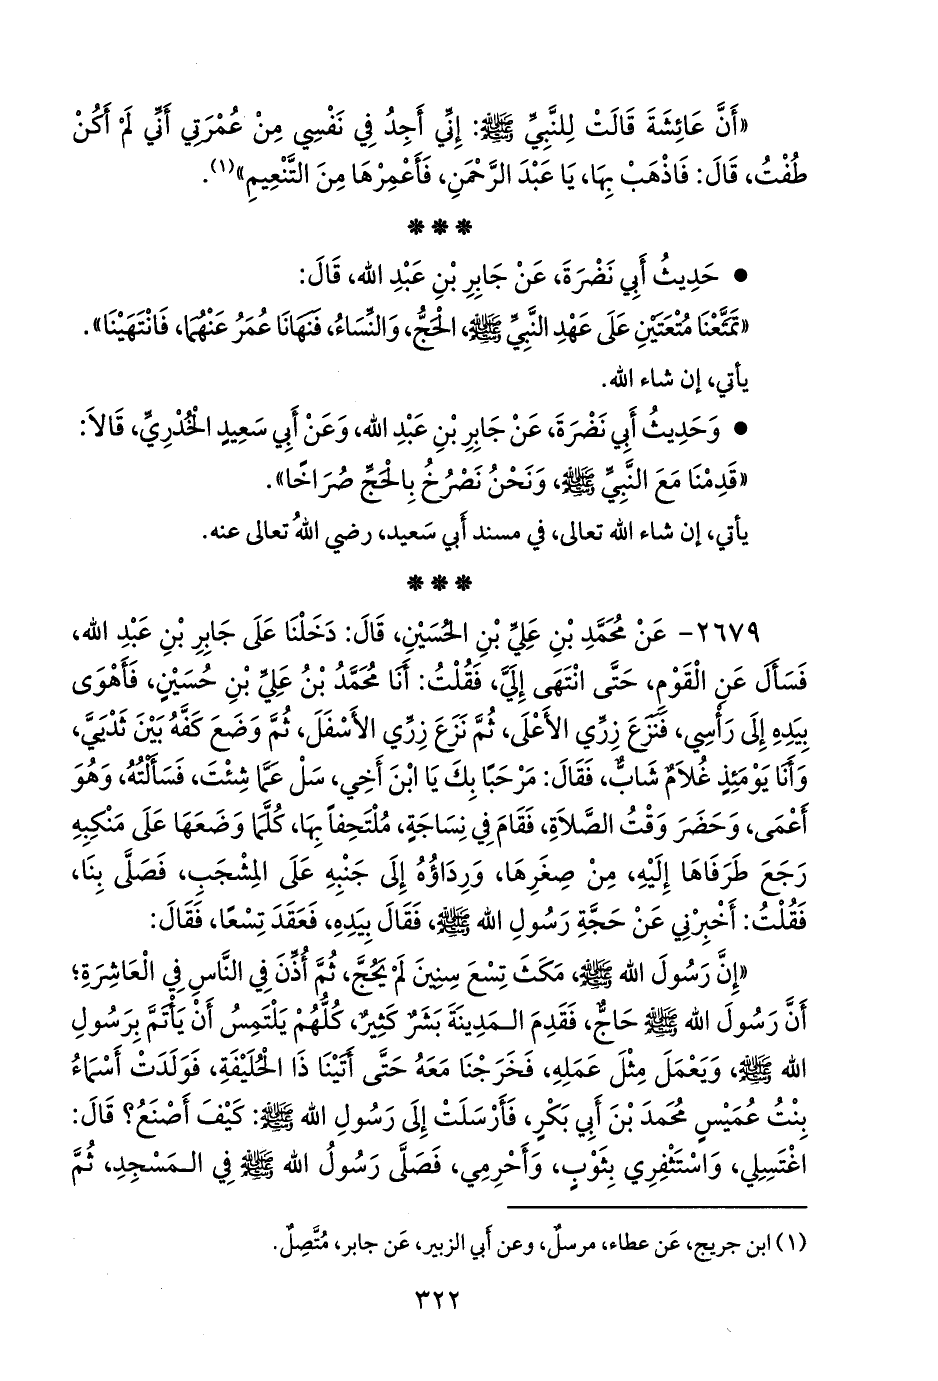 «أَنَّ عَائِشَةَ قَالَتْ لِلنَّبِيِّ ﷺ: إِنِّي أَجِدُ فِي نَفْسِي مِنْ عُمْرَتِي أَنِّي لَمْ أَكُنْ
طُفْتُ، قَالَ: فَاذْهَبْ بِهَا، يَا عَبْدَ الرَّحْمَنِ، فَأَعْمِرْهَا مِنَ التَّنْعِيمِ»(١).
* * *
• حَدِيثُ أَبِي نَضْرَةَ، عَنْ جَابِرِ بْنِ عَبْدِ الله، قَالَ:
«تَمَتَّعْنَا مُتْعَتَيْنِ عَلَى عَهْدِ النَّبِيِّ ﷺ، الْحَجُّ، وَالنِّسَاءُ، فَنَهَانَا عُمَرُ عَنْهُمَا، فَانْتَهَيْنَا».
يأتي، إن شاء الله.
• وَحَدِيثُ أَبِي نَضْرَةَ، عَنْ جَابِرِ بْنِ عَبْدِ الله، وَعَنْ أَبِي سَعِيدٍ الْخُدْرِيِّ، قَالاَ:
«قَدِمْنَا مَعَ النَّبِيِّ ﷺ، وَنَحْنُ نَصْرُخُ بِالْحَجِّ صُرَاخًا».
يأتي، إن شاء الله تعالى، في مسند أَبي سَعيد، رضي اللهُ تعالى عنه.
* * *
٢٦٧٩- عَنْ مُحَمَّدِ بْنِ عَلِيِّ بْنِ الحُسَيْنِ، قَالَ: دَخَلْنَا عَلَى جَابِرِ بْنِ عَبْدِ الله،
فَسَأَلَ عَنِ الْقَوْمِ، حَتَّى انْتَهَى إِلَيَّ، فَقُلْتُ: أَنَا مُحَمَّدُ بْنُ عَلِيِّ بْنِ حُسَيْنٍ، فَأَهْوَى
بِيَدِهِ إِلَى رَأْسِي، فَنَزَعَ زِرِّي الأَعْلَى، ثُمَّ نَزَعَ زِرِّي الأَسْفَلَ، ثُمَّ وَضَعَ كَفَّهُ بَيْنَ ثَدْيَيَّ،
وَأَنَا يَوْمَئِذٍ غُلاَمٌ شَابٌّ، فَقَالَ: مَرْحَبًا بِكَ يَا ابْنَ أَخِي، سَلْ عَمَّا شِئْتَ، فَسَأَلْتُهُ، وَهُوَ
أَعْمَى، وَحَضَرَ وَقْتُ الصَّلاَةِ، فَقَامَ فِي نِسَاجَةٍ، مُلْتَحِفًا بِهَا، كُلَّمَا وَضَعَهَا عَلَى مَنْكِبِهِ
رَجَعَ طَرَفَاهَا إِلَيْهِ، مِنْ صِغَرِهَا، وَرِدَاؤُهُ إِلَى جَنْبِهِ عَلَى الْمِشْجَبِ، فَصَلَّى بِنَا،
فَقُلْتُ: أَخْبِرْنِي عَنْ حَجَّةِ رَسُولِ الله ﷺ، فَقَالَ بِيَدِهِ، فَعَقَدَ تِسْعًا، فَقَالَ:
«إِنَّ رَسُولَ الله ﷺ، مَكَثَ تِسْعَ سِنِينَ لَمْ يَحُجَّ، ثُمَّ أُذِّنَ فِي النَّاسِ فِي الْعَاشِرَةِ؛
أَنَّ رَسُولَ الله ﷺ حَاجٌّ، فَقَدِمَ الْمَدِينَةَ بَشَرٌ كَثِيرٌ، كُلُّهُمْ يَلْتَمِسُ أَنْ يَأْتَمَّ بِرَسُولِ
الله ﷺ، وَيَعْمَلَ مِثْلَ عَمَلِهِ، فَخَرَجْنَا مَعَهُ حَتَّى أَتَيْنَا ذَا الْحُلَيْفَةِ، فَوَلَدَتْ أَسْمَاءُ
بِنْتُ عُمَيْسٍ مُحَمدَ بْنَ أَبِي بَكْرٍ، فَأَرْسَلَتْ إِلَى رَسُولِ الله ﷺ: كَيْفَ أَصْنَعُ؟ قَالَ:
اغْتَسِلِي، وَاسْتَثْفِرِي بِثَوْبٍ، وَأَحْرِمِي، فَصَلَّى رَسُولُ الله ﷺ فِي الْمَسْجِدِ، ثُمَّ
(١) ابن جريج، عَن عطاء، مرسلٌ، وعن أَبي الزبير، عَن جابر، مُتَّصِلٌ.
٣٢٢